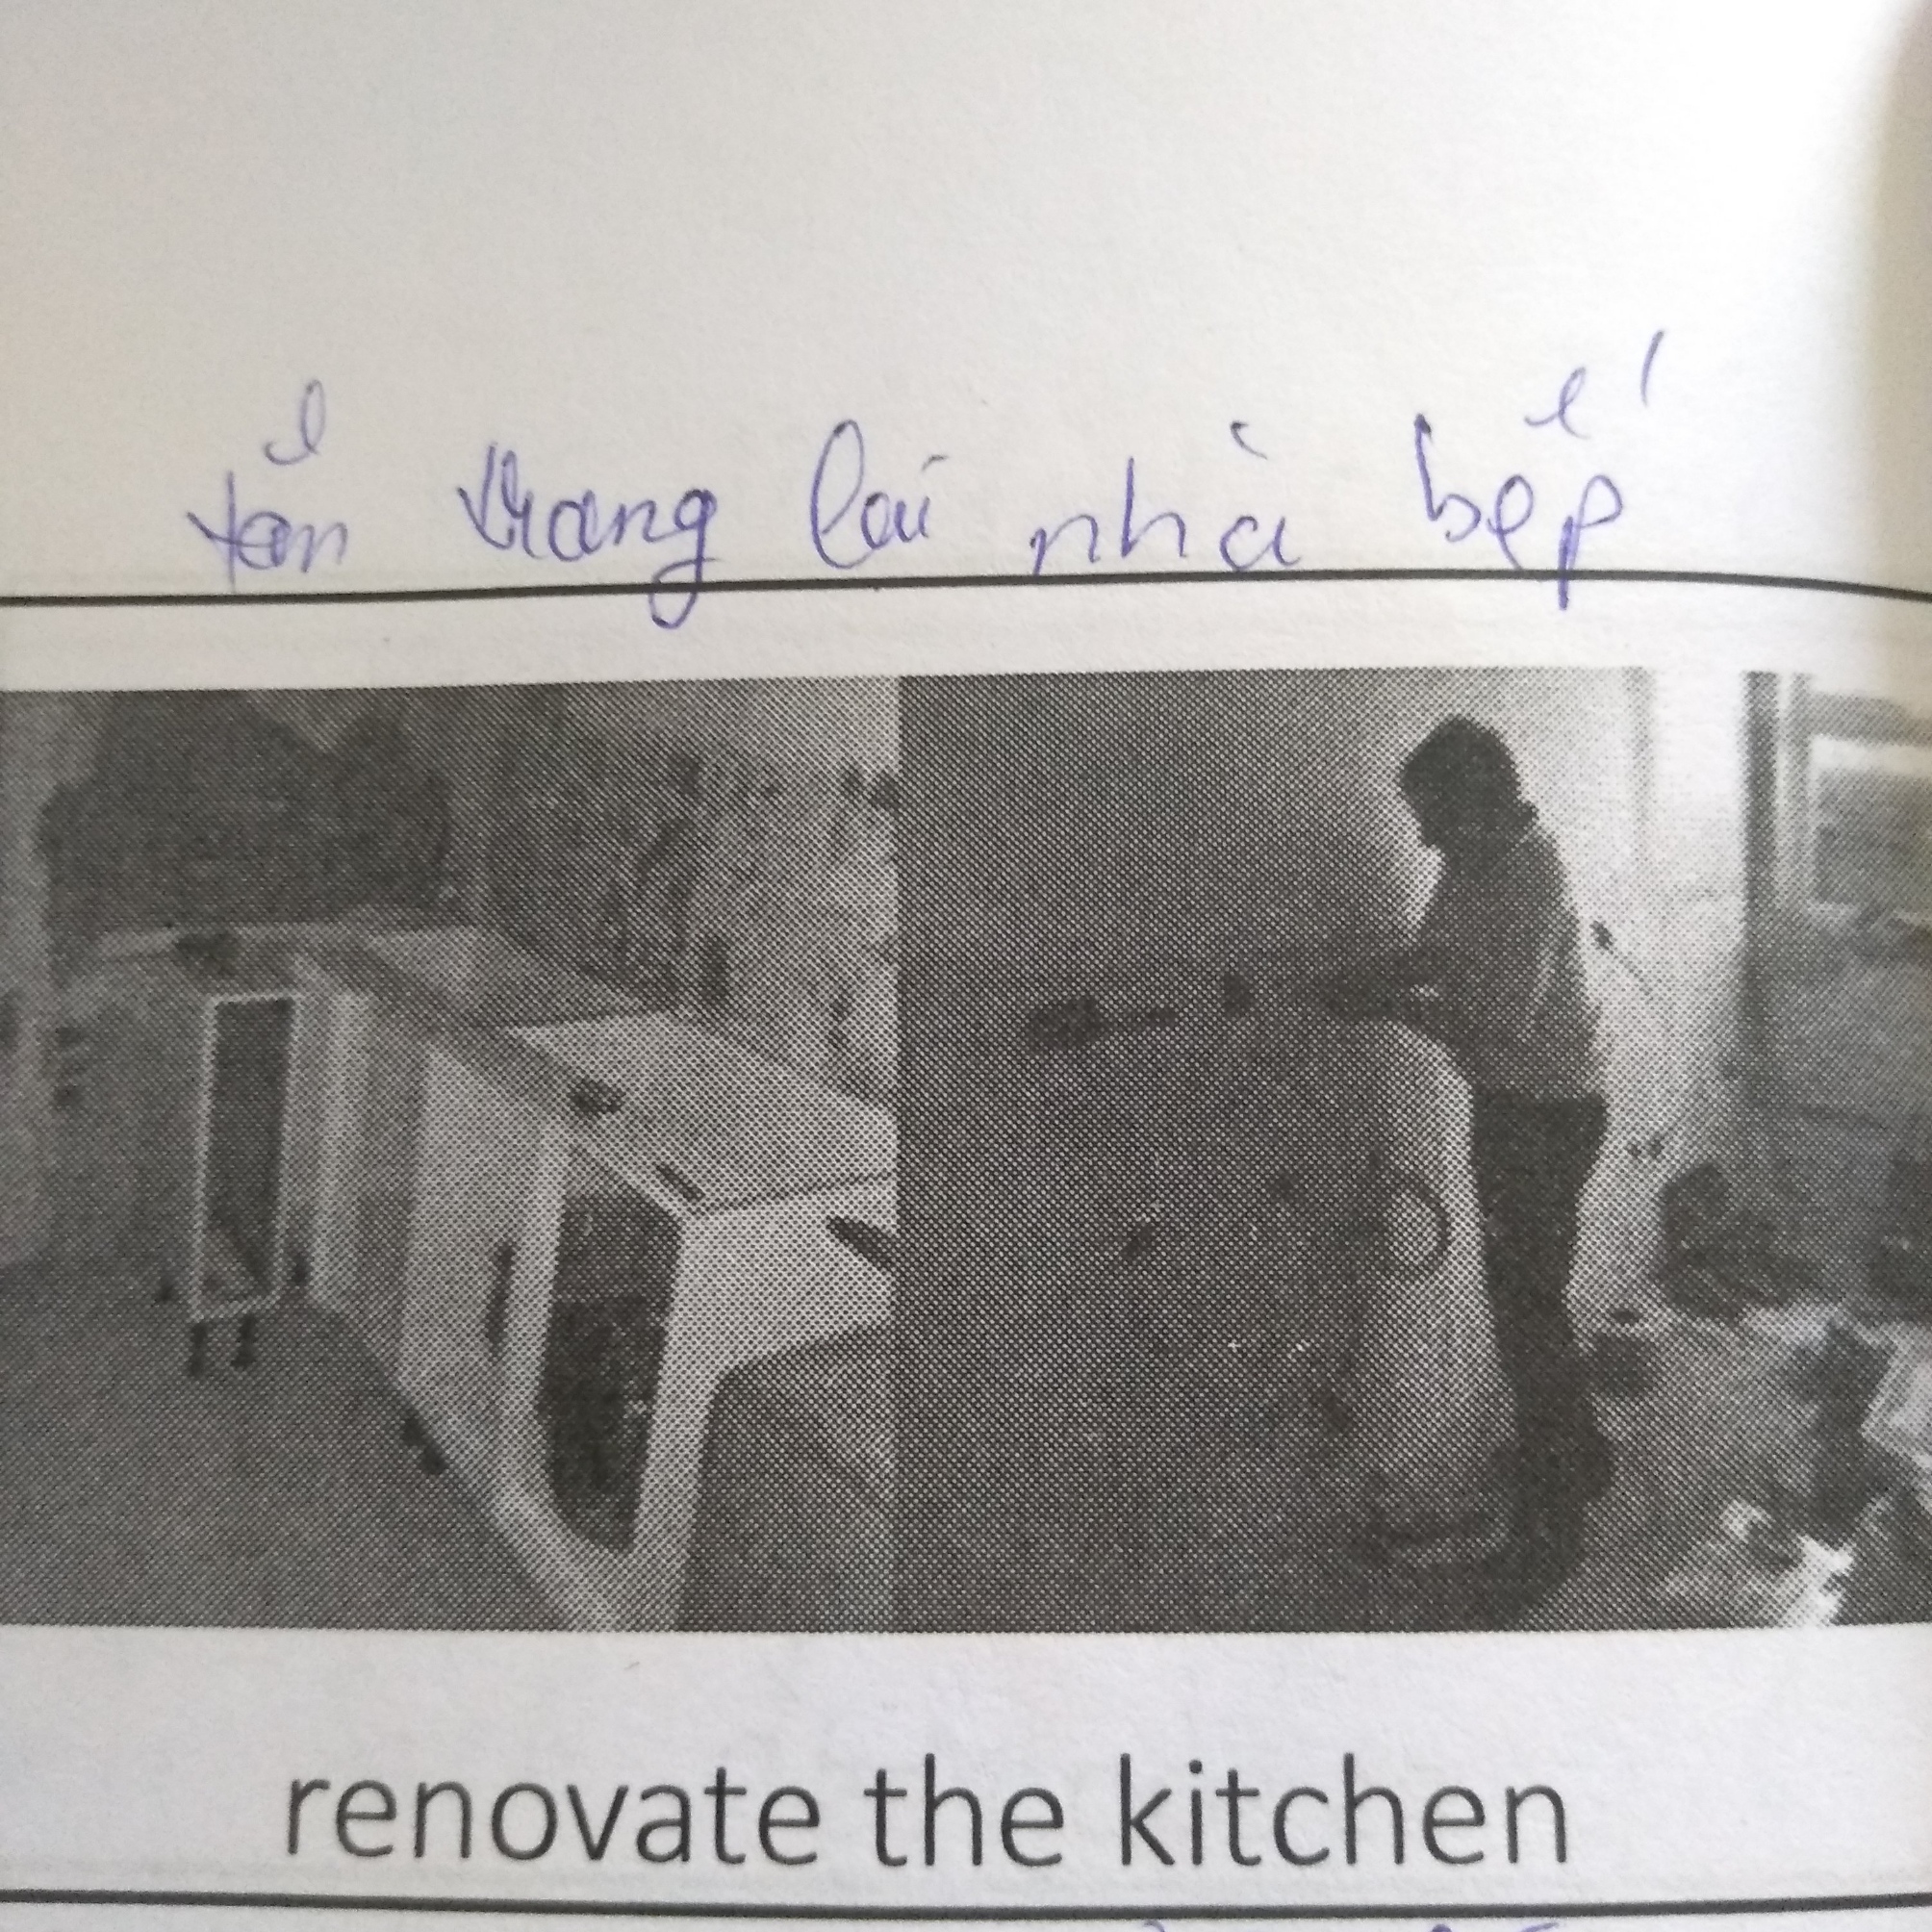 tân trang lại nhà bếp
renovate the kitchen